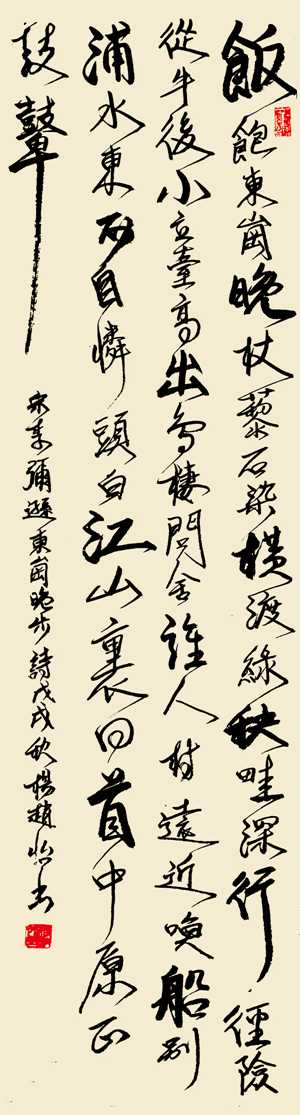 飯飽東崗晚杖藜石梁橫渡綠秧畦深行徑險
從牛後小立臺高出鳥棲問舍誰人村遠近喚船別
浦水東西自憐頭白江山裏回首中原正
鼓鼙
宋李彌遜東崗晚步詩戊戌秋楊趙怡書